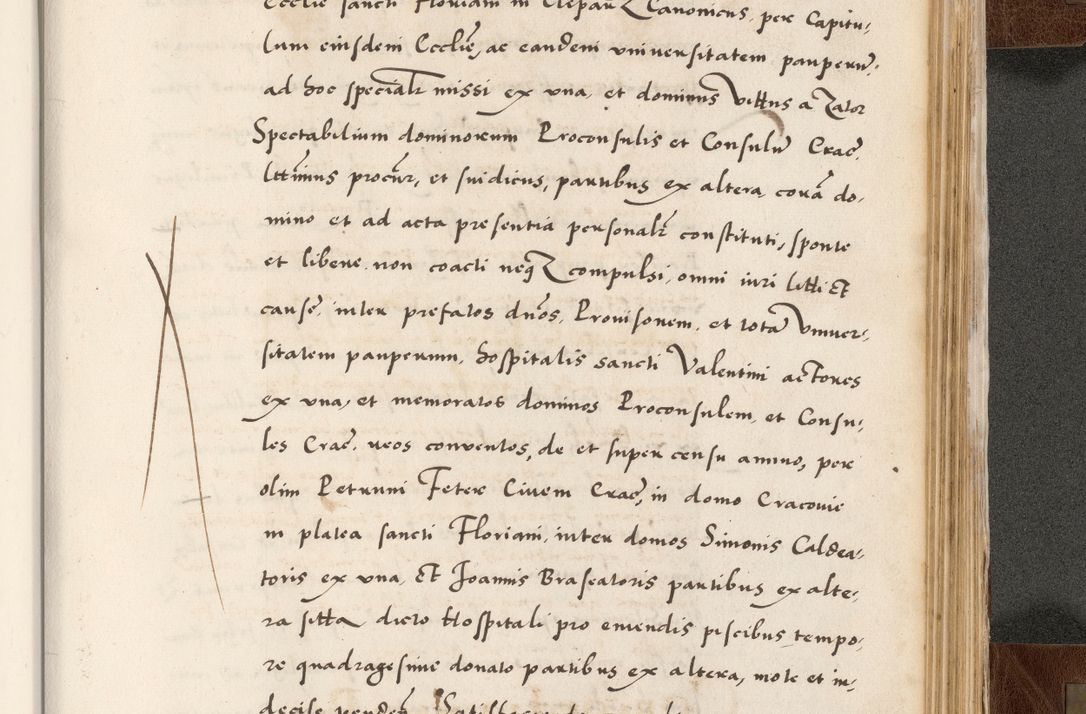 Ecclie sancti Floriani in Clepar Canonicus, per Capitu-
lum eiusdem Ecclie, ac eandem universitatem pauperu,
ad hoc specialr missi ex una, et dominus Vittus a Zator
Spectabilium dominorum Proconsulis et Consulu Crac.
lttimus procur, et sindicus, partibus ex altera, cora do-
mino et ad acta presentia personalr constituti, sponte
et libere non coacti neqz compulsi, omni iuri litti et
cause, inter prefatos dnos, Provisorem, et tota Univer-
sitatem pauperum, hospitalis sancti Valentini actores
ex una, et memoratos dominos Proconsulem, et Consu-
les Crac. reos conventos, de et super censu annuo, per
olim Petrum Feter Civem Crac, in domo Cracovie
in platea sancti Floriani, inter domos Simonis Caldea-
toris ex una, Et Joannis Braseatoris partibus ex alte-
ra sitta dicto Hospitali pro emendis piscibus tempo-
re quadragesime donato partibus ex altera, mote et in-
decise